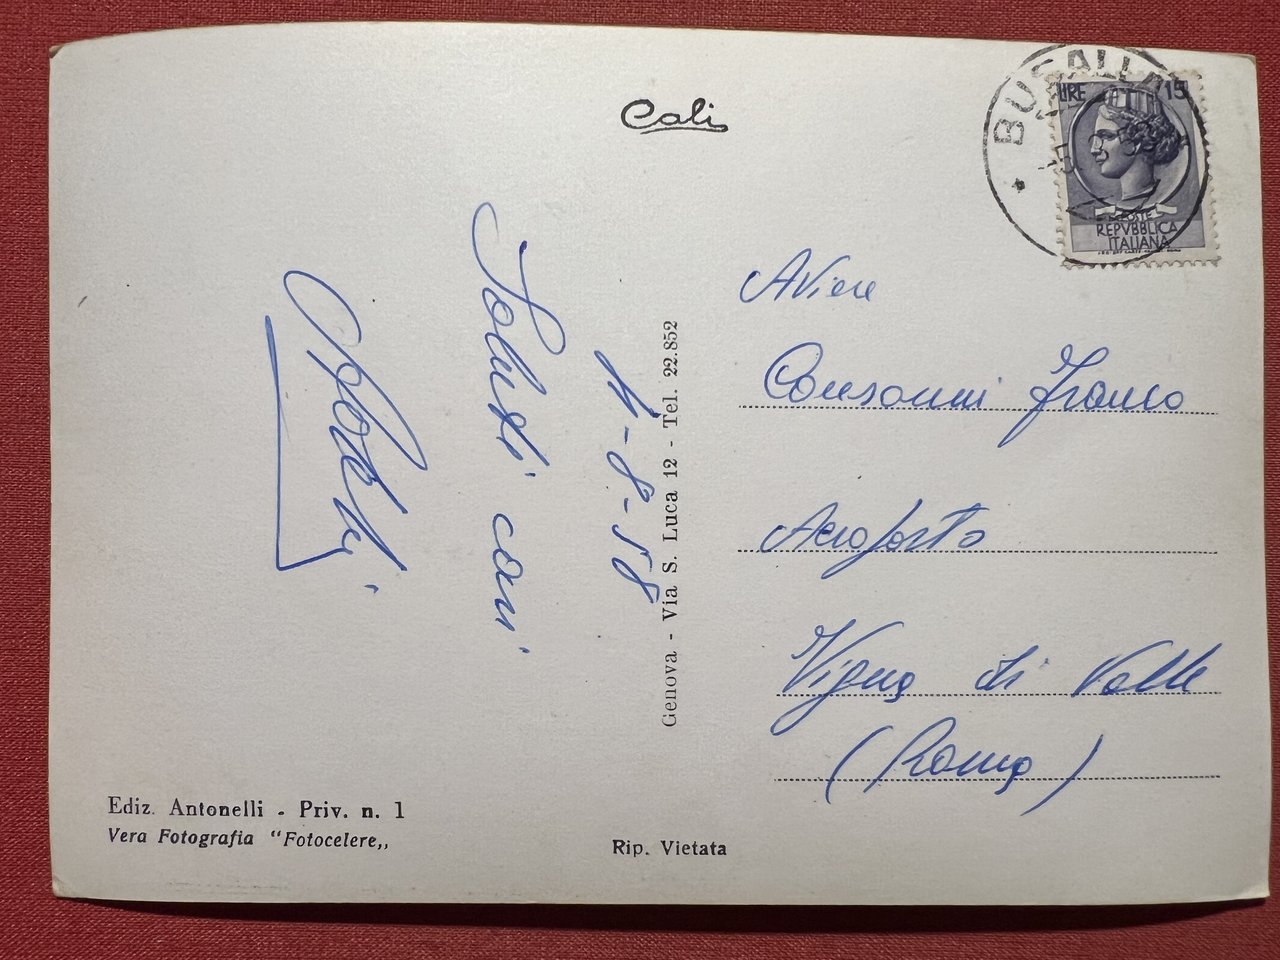 Cali
BUSALLA
LIRE 15
POSTE
REPVBBLICA
ITALIANA
Aviere
Consonni Franco
Aeroporto
Vigna di Valle
(Roma)
Genova - Via S. Luca 12 - Tel. 22.852
Saluti cari
Ediz. Antonelli - Priv. n. 1
Vera Fotografia "Fotocelere„
Rip. Vietata